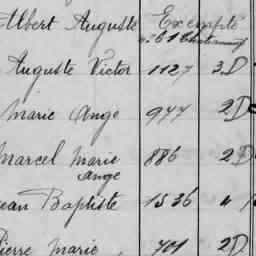 Albert Auguste Exempté
Auguste Victor 1127 3.D
Marie Ange 977 2.D
Marcel Marie 886 2.D
Ange
Jean Baptiste 1536 "
Pierre Marie 701 2D